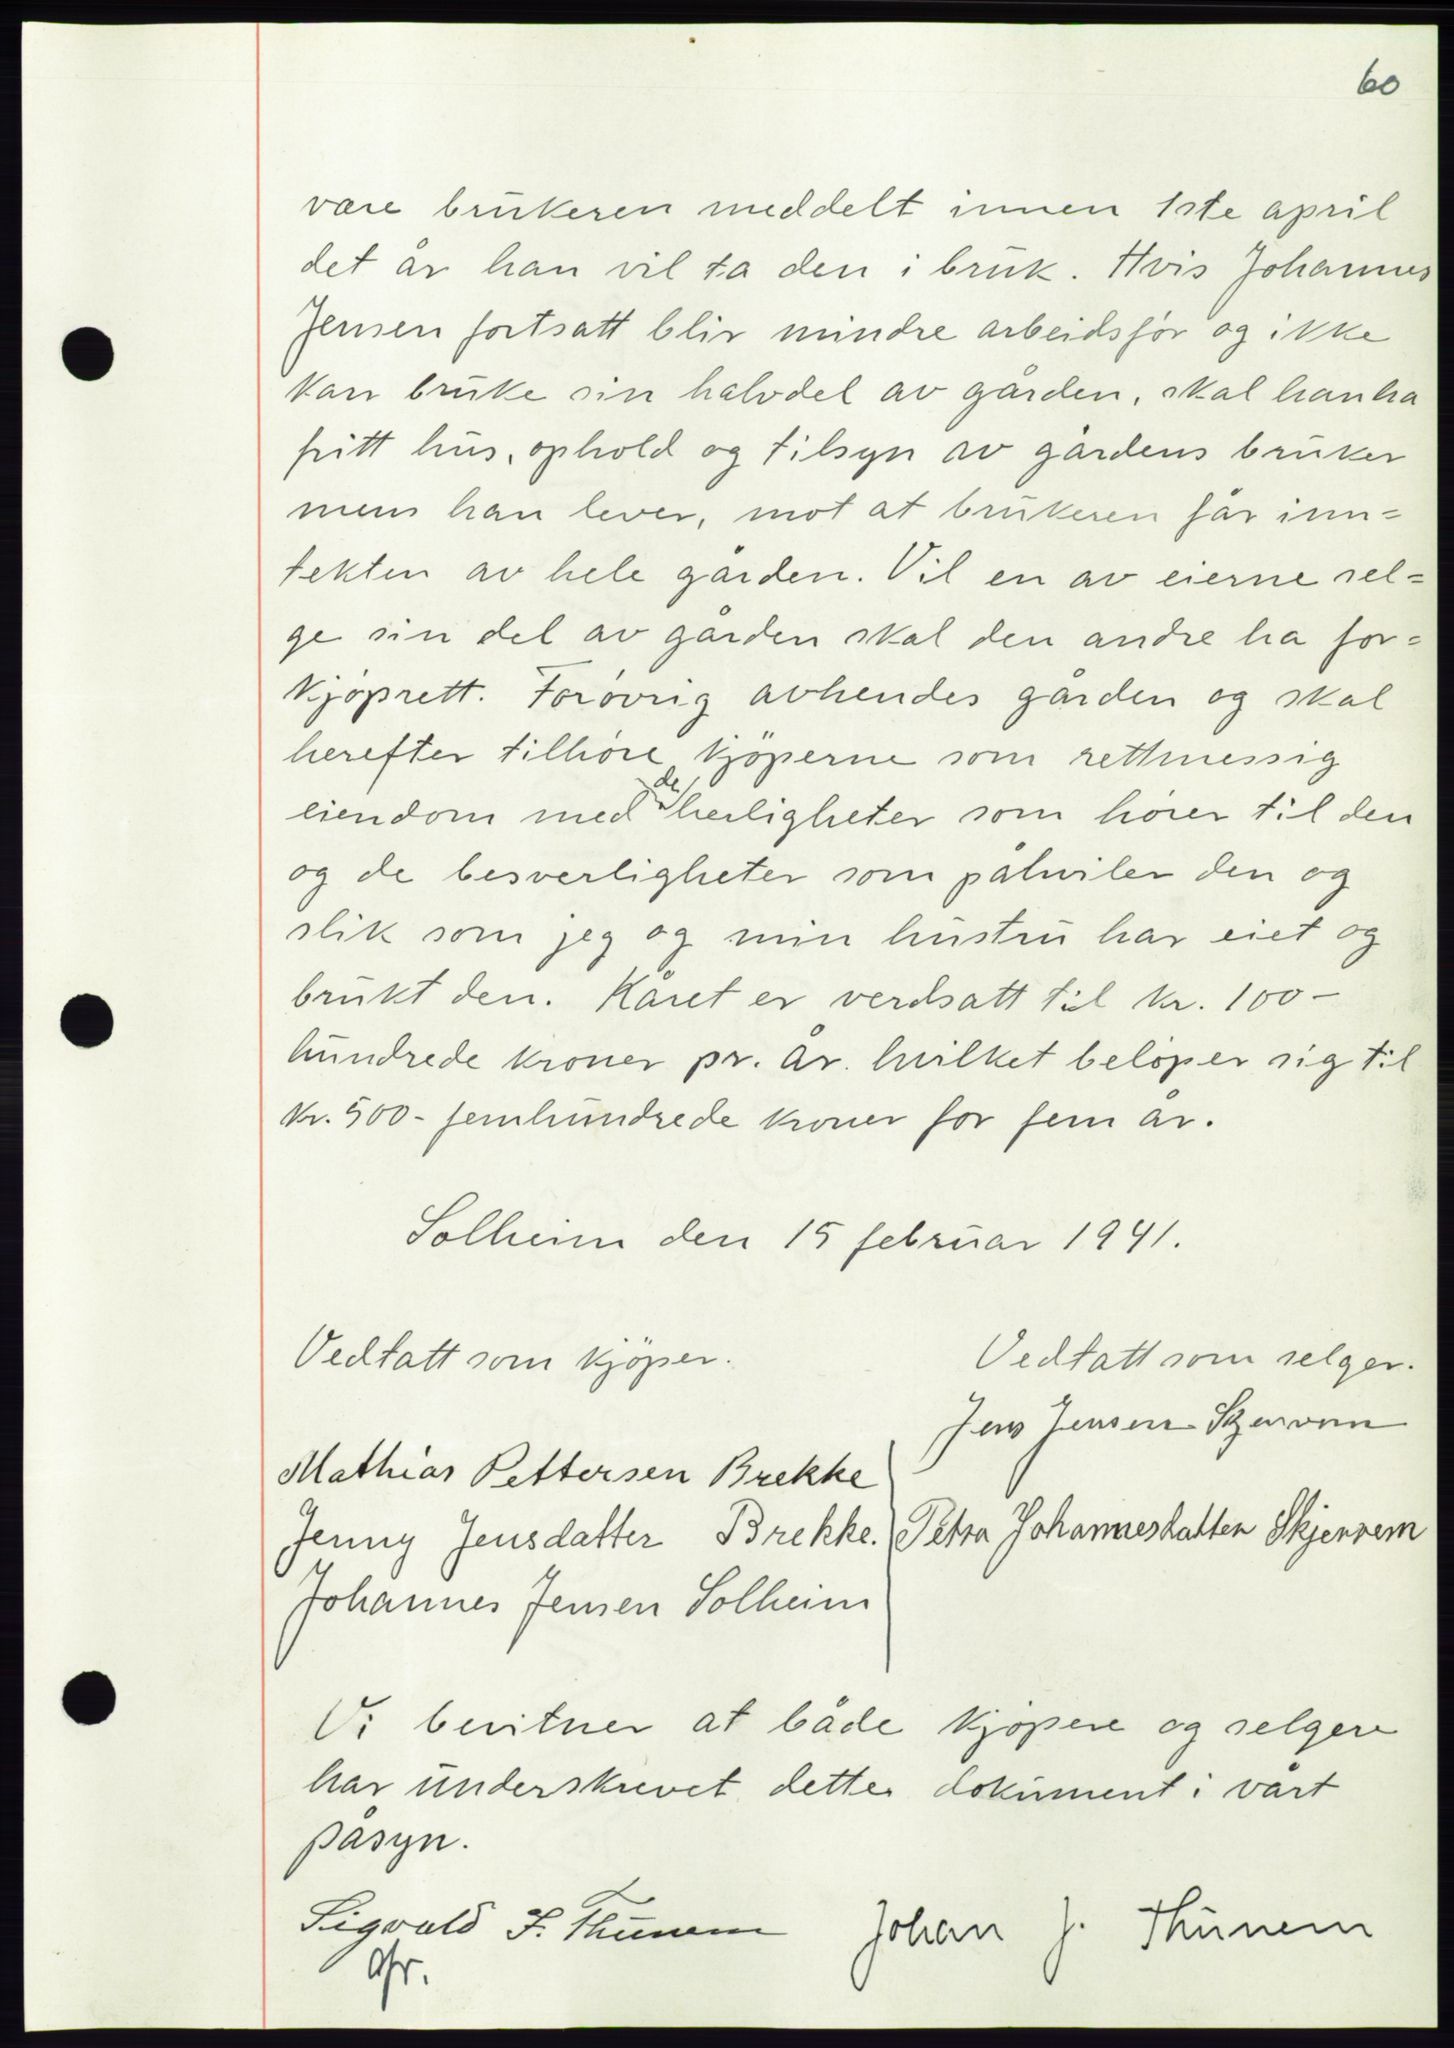 60
være brukeren meddelt innen 1ste april
det år han vil ta den i bruk. Hvis Johannes
Jensen fortsatt blir mindre arbeidsfør og ikke
kan bruke sin halvdel av gården, skal han ha
fritt hus, ophold og tilsyn av gårdens bruker
mens han lever, mot at brukeren får inn=
tekten av hele gården. Vil en av eierne sel=
ge sin del av gården skal den andre ha for=
kjøprett. Forøvrig avhendes gården og skal
herefter tilhøre kjøperne som rettmessig
eiendom med de herligheter som hører til den
og de besverligheter som påhviler den og
slik som jeg og min hustru har eiet og
brukt den. Kåret er verdsatt til kr. 100-
hundrede kroner pr. år. hvilket beløper sig til
kr. 500- femhundrede kroner for fem år.
Solheim den 15 februar 1941.
Vedtatt som kjøper. Vedtatt som selger.
Jens Jensen Skjervem
Mathias Pettersen Brekke
Jenny Jensdatter Brekke. Petra Johannesdatter Skjervem
Johannes Jensen Solheim
Vi bevitner at både kjøpere og selgere
har underskrevet dette dokument i vårt
påsyn.
Sigvald J. Thunem Johan J. Thunem